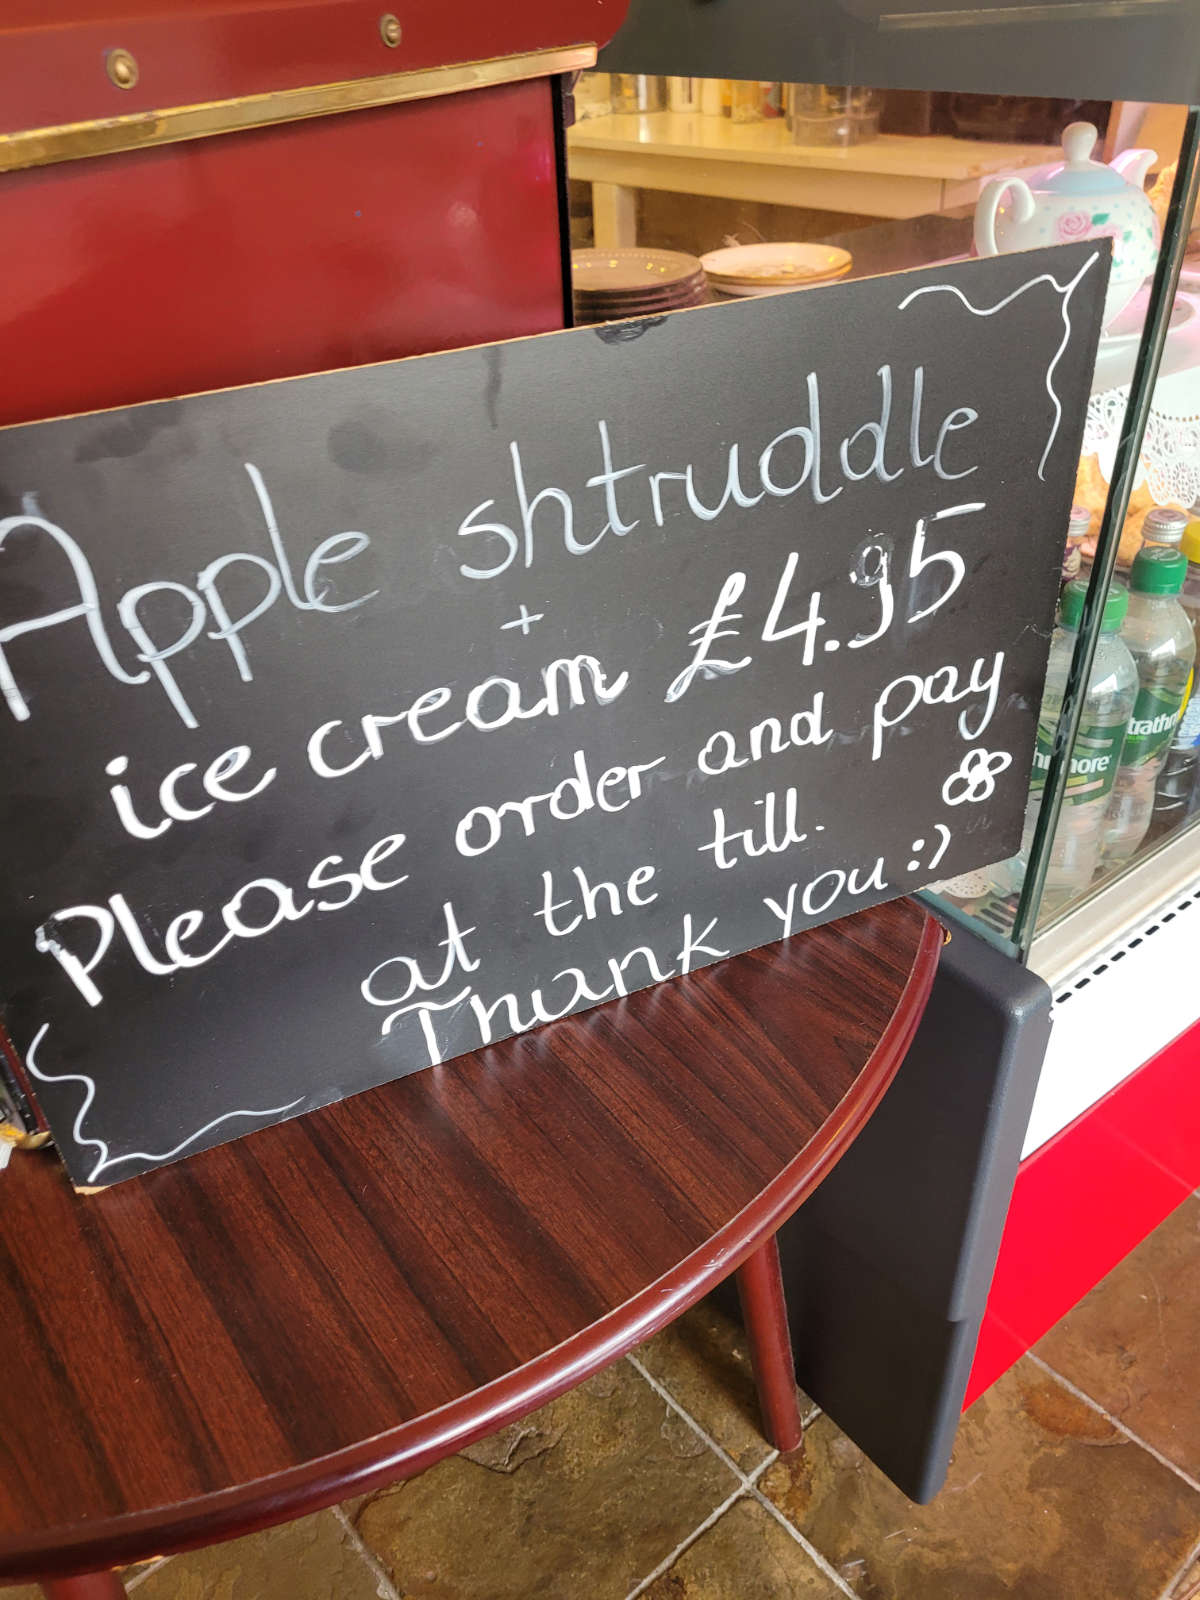 Apple shtruddle
+
ice cream £4.95
Please order and pay
at the till.
Thank you :)